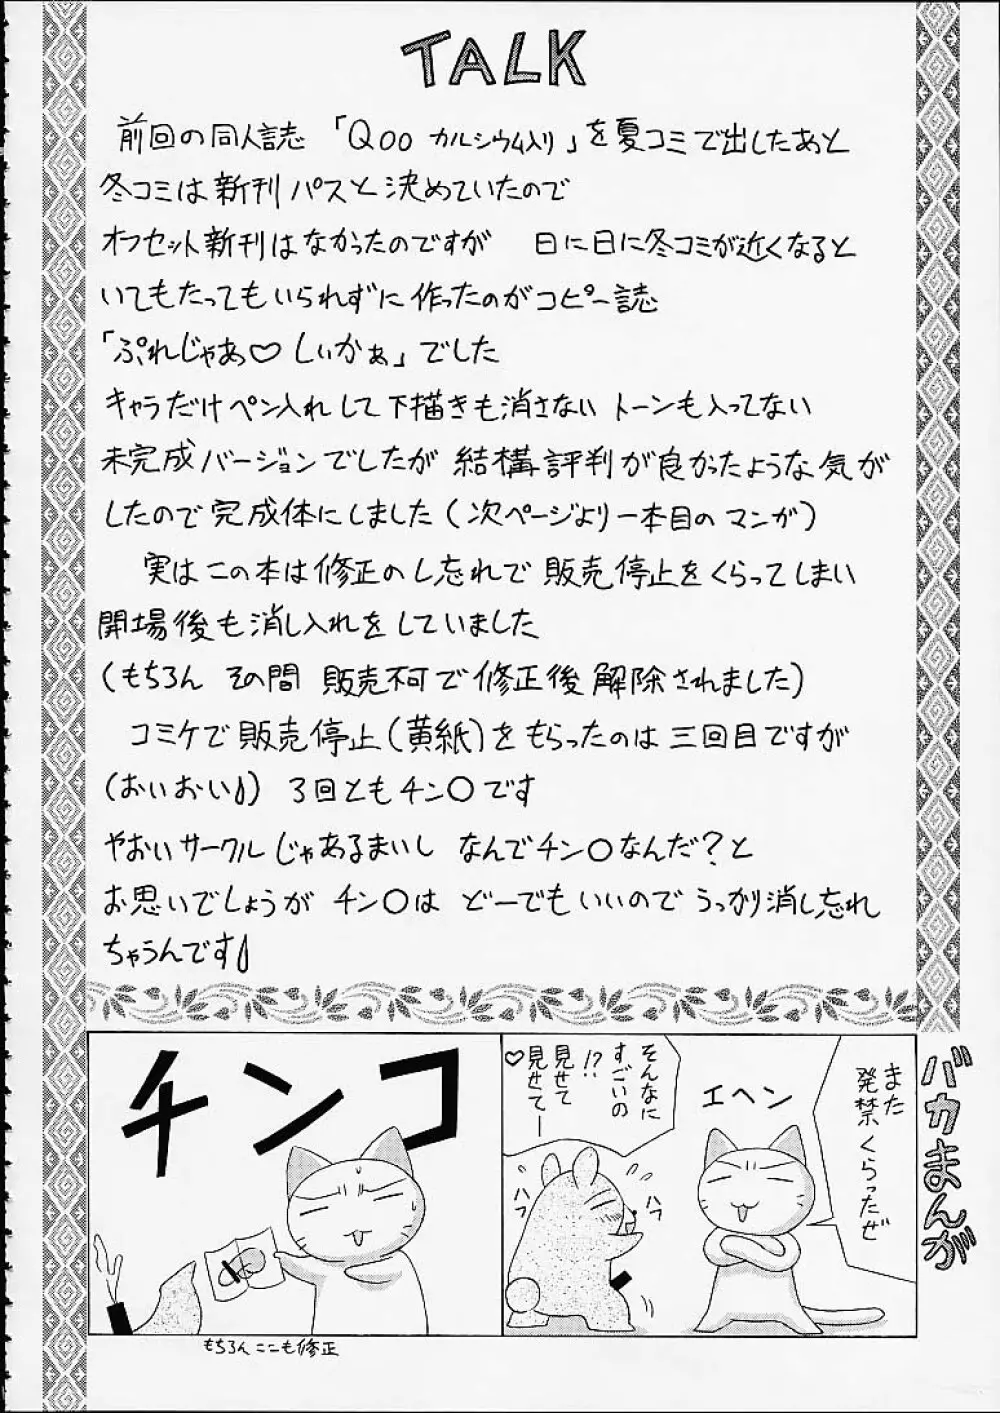 TALK
前回の同人誌 「Qoo カルシウム入り」を夏コミで出したあと
冬コミは新刊パスと決めていたので
オフセット新刊はなかったのですが 日に日に冬コミが近くなると
いてもたってもいられずに作ったのがコピー誌
「ぷれじゃあ♡しぃかぁ」でした
キャラだけペン入れして下描きも消さない トーンも入ってない
未完成バージョンでしたが 結構評判が良かったような気が
したので完成体にしました(次ページより一本目のマンガ)
実はこの本は修正のし忘れで販売停止をくらってしまい
開場後も消し入れをしていました
(もちろん その間 販売不可で修正後解除されました)
コミケで販売停止(黄紙)をもらったのは三回目ですが
(おいおい) 3回ともチン〇です
やおいサークルじゃあるまいし なんでチン〇なんだ?と
お思いでしょうが チン〇は どーでもいいので うっかり消し忘れ
ちゃうんです
バカまんが
また
発禁くらったぜ
エヘン
そんなに
すごいの
!?
見せて
見せてー
♡
ハフ
ハフ
チンコ
もちろんここも修正